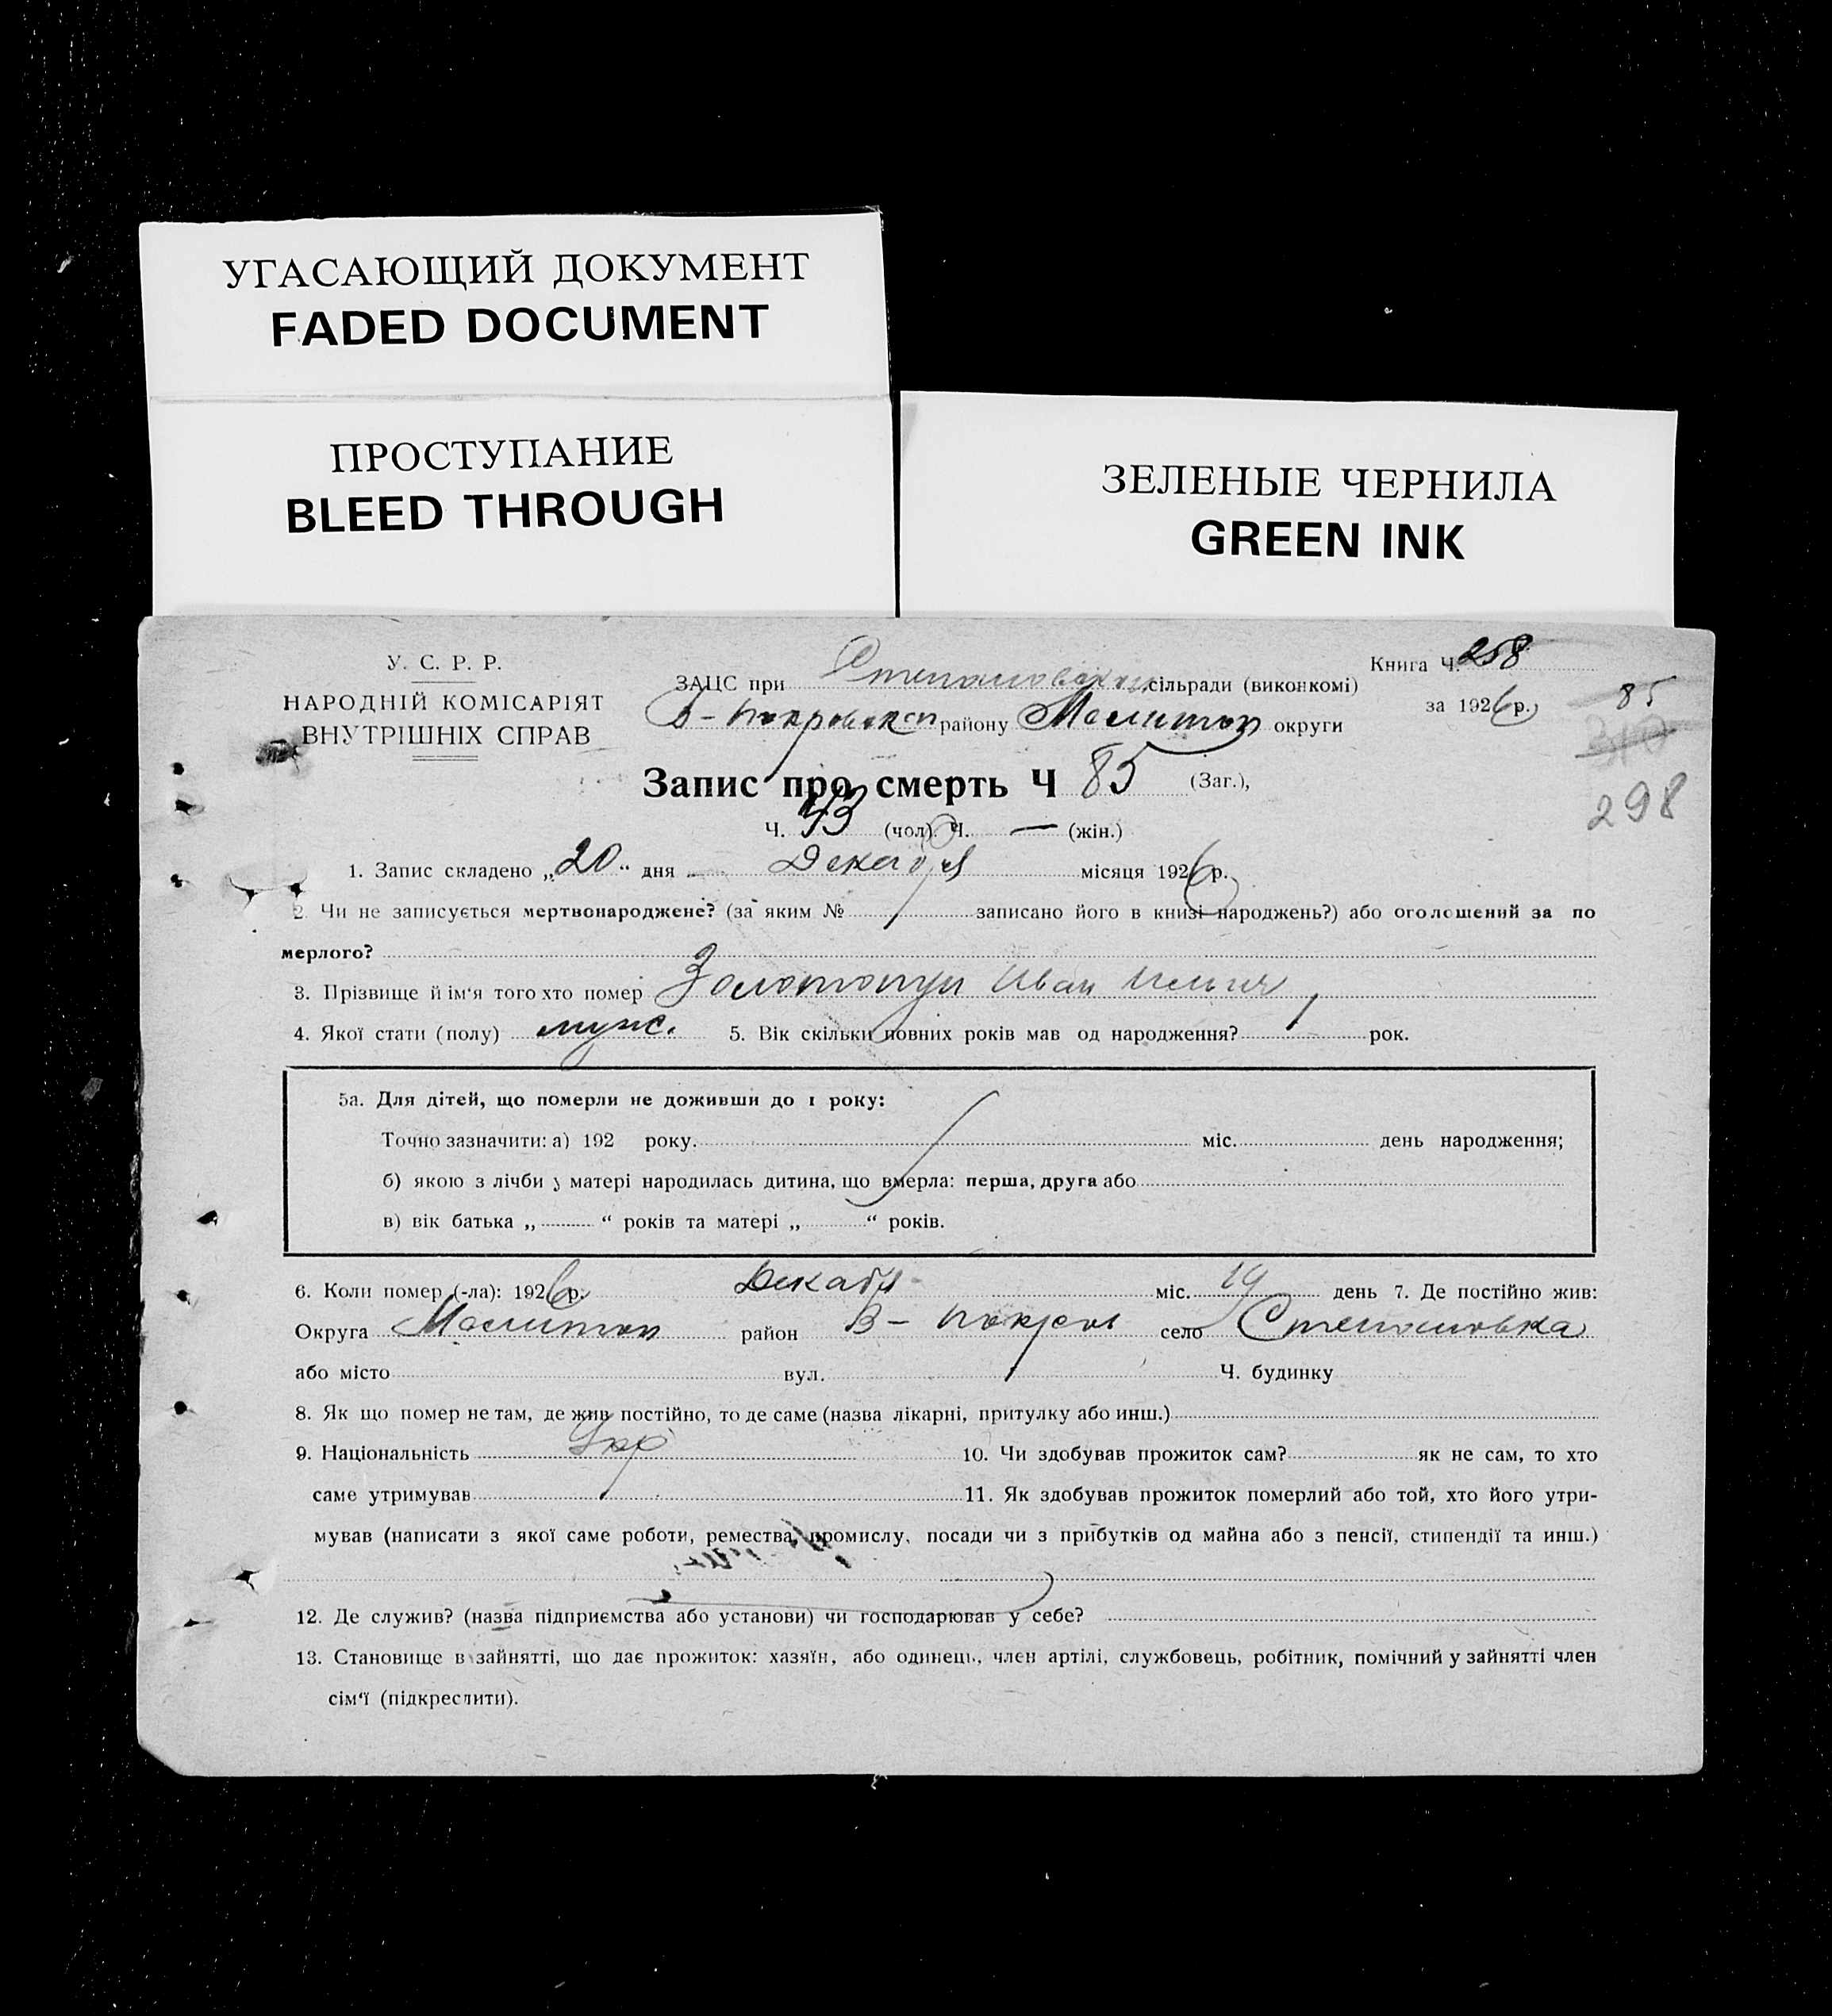 УГАСАЮЩИЙ ДОКУМЕНТ
FADED DOCUMENT
ПРОСТУПАНИЕ
BLEED THROUGH
ЗЕЛЕНЫЕ ЧЕРНИЛА
GREEN INK
У. С. Р. Р.
НАРОДНІЙ КОМІСАРІЯТ
ВНУТРІШНІХ СПРАВ
ЗАЦС при сільради (виконкомі)
В- району Мелитоп округи
Книга Ч. 258
за 1926 р.
85
310
298
Запис про смерть Ч 85 (Заг.),
Ч. 43 (чол). Ч. — (жін.)
1. Запис складено „20“ дня Декабря місяця 1926 р.
2. Чи не записується мертвонароджене? (за яким № записано його в книзі народжень?) або оголошений за по
мерлого?
3. Прізвище й ім‘я того хто помер Иван
4. Якої стати (полу) муж. 5. Вік скільки повних років мав од народження? рок.
5а. Для дітей, що померли не доживши до 1 року:
Точно зазначити: а) 192 року. міс. день народження;
б) якою з лічби у матері народилась дитина, що вмерла: перша, друга або
в) вік батька „ “ років та матері „ “ років.
6. Коли помер (-ла): 1926 р. Декабр міс. 19 день 7. Де постійно жив:
Округа Мелитоп район В- село Степановка
або місто вул. Ч. будинку
8. Як що помер не там, де жив постійно, то де саме (назва лікарні, притулку або инш.)
9. Національність Укр 10. Чи здобував прожиток сам? як не сам, то хто
саме утримував 11. Як здобував прожиток померлий або той, хто його утри-
мував (написати з якої саме роботи, ремества, промислу, посади чи з прибутків од майна або з пенсії, стипендії та инш.)
12. Де служив? (назва підприємства або установи) чи господарював у себе?
13. Становище в зайнятті, що дає прожиток: хазяїн, або одинець, член артілі, службовець, робітник, помічний у зайнятті член
сім‘ї (підкреслити).